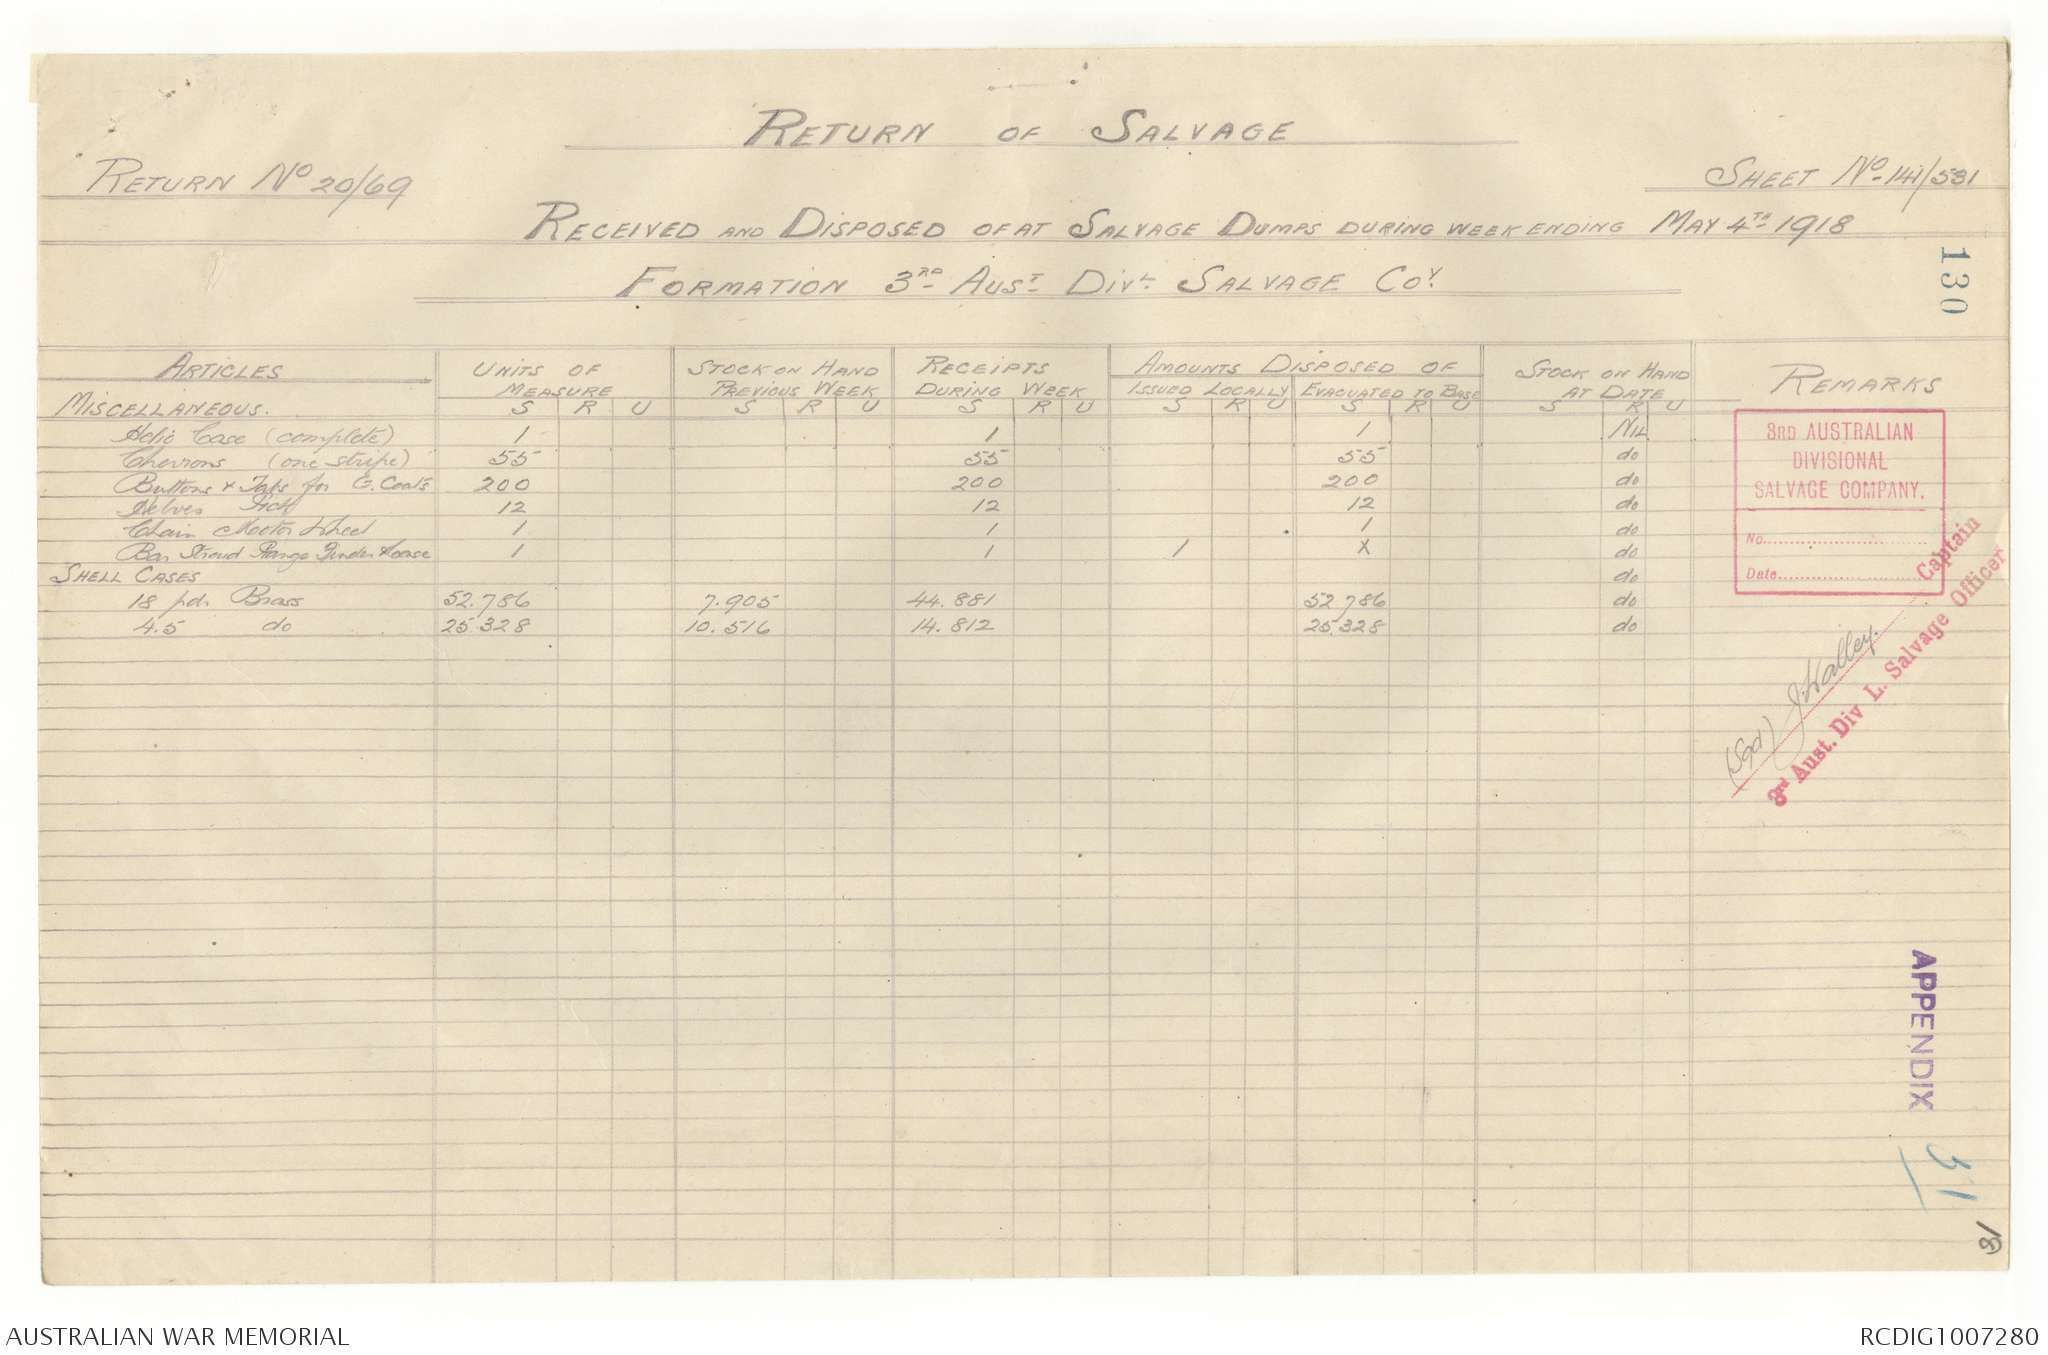 RETURN OF SALVAGE
RETURN No 20/69
SHEET No 141/531
RECEIVED AND DISPOSED OF AT SALVAGE DUMPS DURING WEEK ENDING MAY 4TH 1918
130
FORMATION 3RD AUST DIVL SALVAGE COY.
ARTICLES UNITS OF MEASURE STOCK ON HAND PREVIOUS WEEK RECEIPTS DURING WEEK AMOUNTS DISPOSED OF STOCK ON HAND AT DATE REMARKS
ISSUED LOCALLY EVACUATED TO BASE
MISCELLANEOUS. S R U S R U S R U S R U S R U S R U
Helio Case (complete) 1 1 1 NIL
Chevrons (one stripe) 55 55 55 do
Buttons & Tabs for G. Coats 200 200 200 do
Helves Pick 12 12 12 do
Chain Motor Wheel 1 1 1 do
Bar Stroud Range Finder & case 1 1 1 X do
SHELL CASES do
18 pdr Brass 52.786 7.905 44.881 52.786 do
4.5 do 25.328 10.516 14.812 25.328 do
3RD AUSTRALIAN
DIVISIONAL
SALVAGE COMPANY.
No.
Date
(Sgd) J. Walley. Captain
3rd Aust. Div L. Salvage Officer
APPENDIX
51
18
AUSTRALIAN WAR MEMORIAL
RCDIG1007280